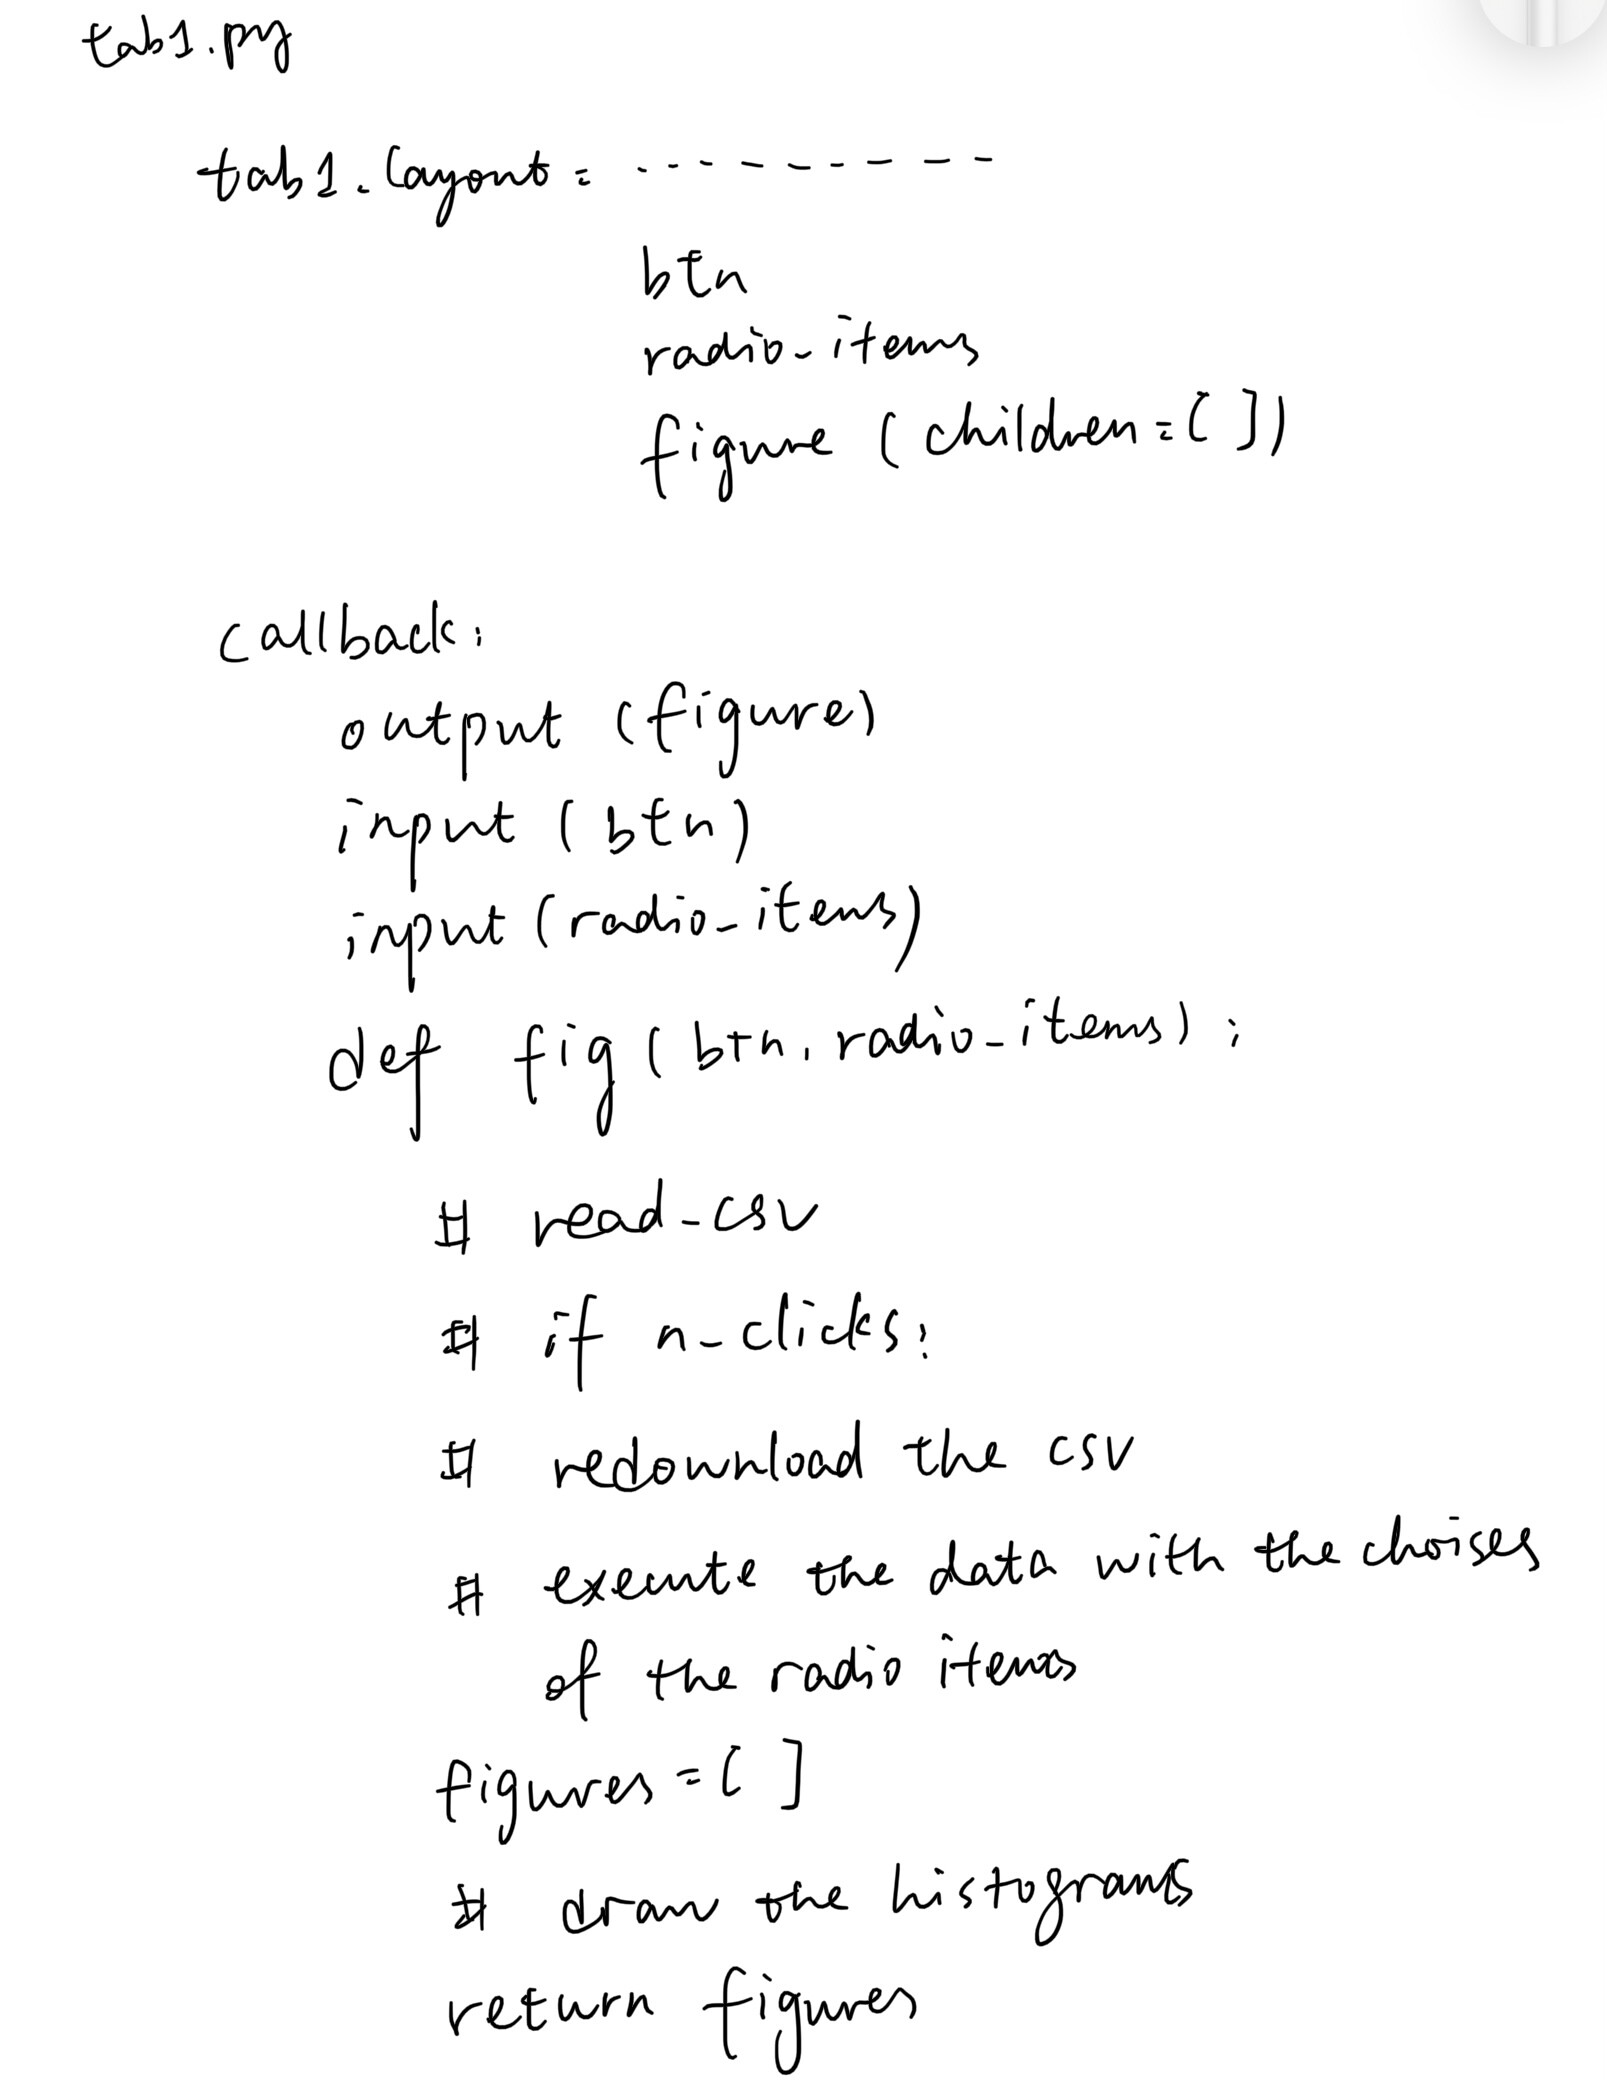 tab1.py
tab1.layout = - - - - - - - - -
btn
radio-items
figure (children=[ ])
callback:
output (figure)
input (btn)
input (radio-items)
def fig (btn, radio-items):
# read-csv
# if n-clicks:
# redownload the csv
# execute the data with the choises
of the radio items
figures = [ ]
# draw the histograms
return figures